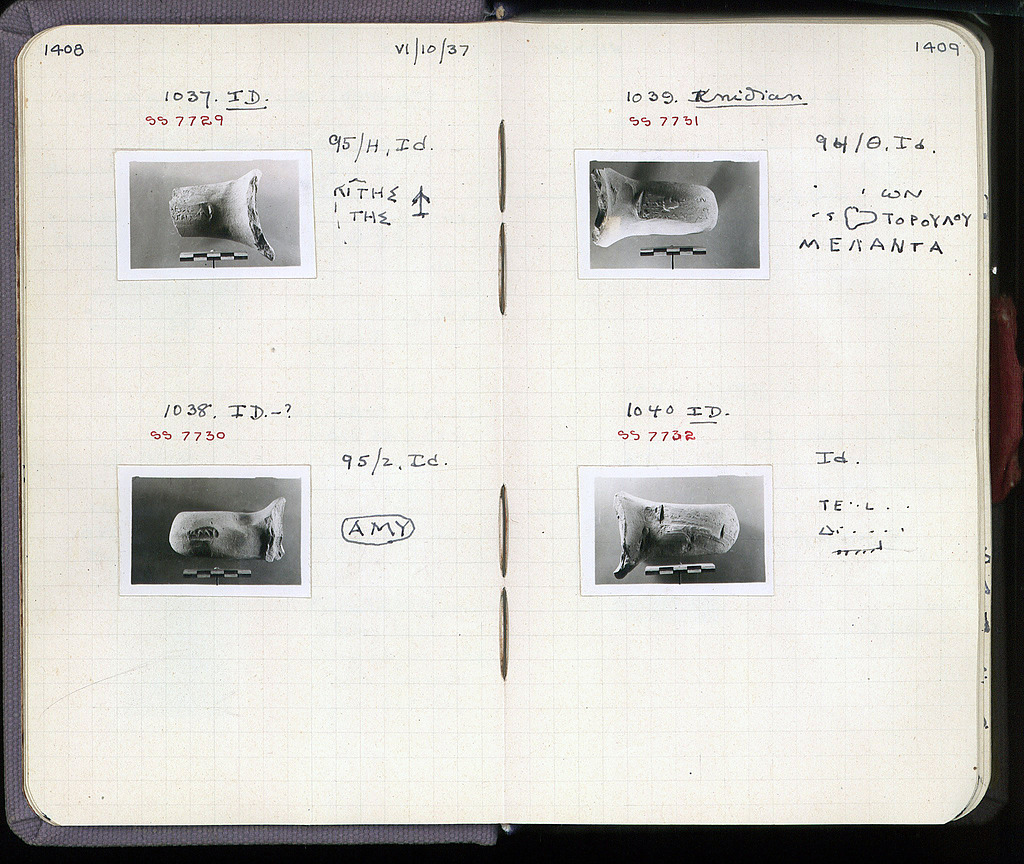 1408
VI/10/37
1037. ID.
SS 7729
95/H, Id.
ΚΙΤΗΣ
ΤΗΣ
1038. ID.-?
SS 7730
95/2, Id.
ΑΜΥ
1409
1039. Knidian
SS 7731
94/Θ, Id.
ΩΝ
ΤΟΡΟΥΛΟΥ
ΜΕΛΑΝΤΑ
1040 ID.
SS 7732
Id.
ΤΕ··L...
ΔΙ.....